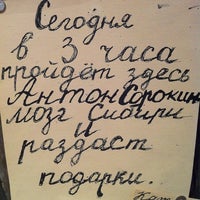 Сегодня
в 3 часа
пройдёт здесь
Антон Сорокин
мозг Сибири
и
раздаст
подарки..